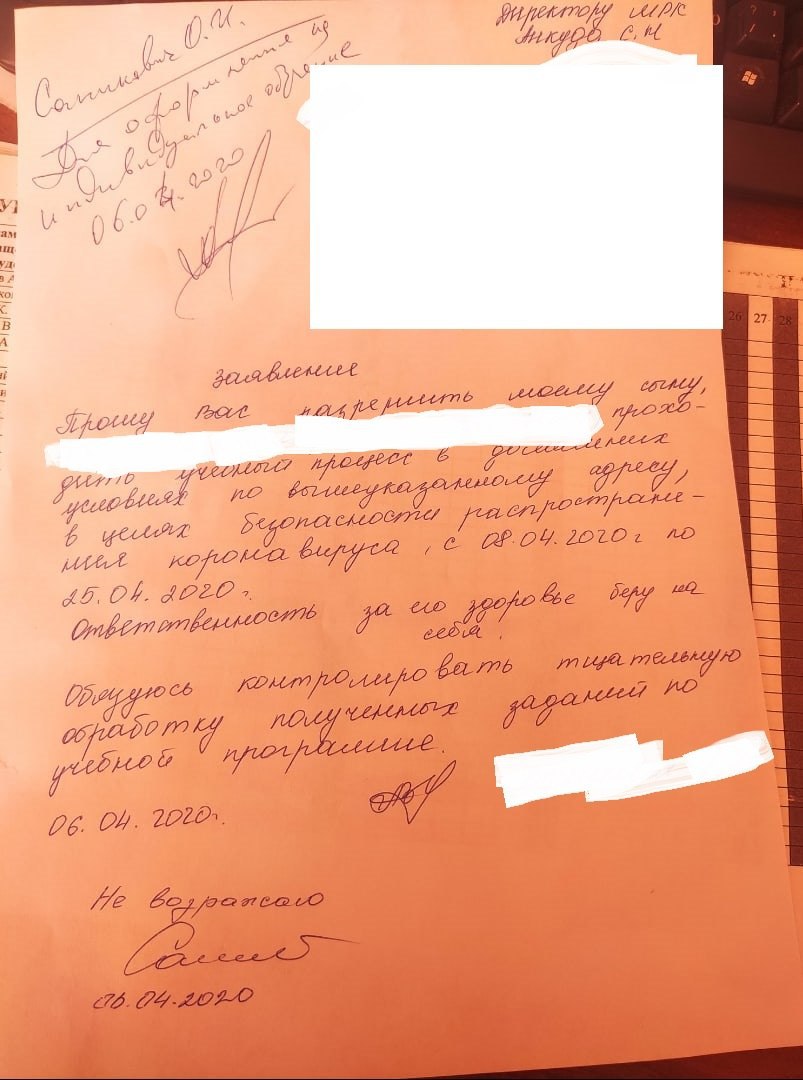 Директору МРК
Анкуда С.Н
Саникович О.И.
Для оформления на
индивидуальное обучение
06.04.2020
Заявление
Прошу Вас разрешить моему сыну,
прохо-
дить учебный процесс в домашних
условиях по вышеуказанному адресу,
в целях безопасности распростране-
ния коронавируса, с 08.04.2020г по
25.04.2020г.
Ответственность за его здоровье беру на
себя.
Обязуюсь контролировать тщательную
обработку полученных заданий по
учебной программе.
06.04.2020г.
Не возражаю
06.04.2020
26 27 28